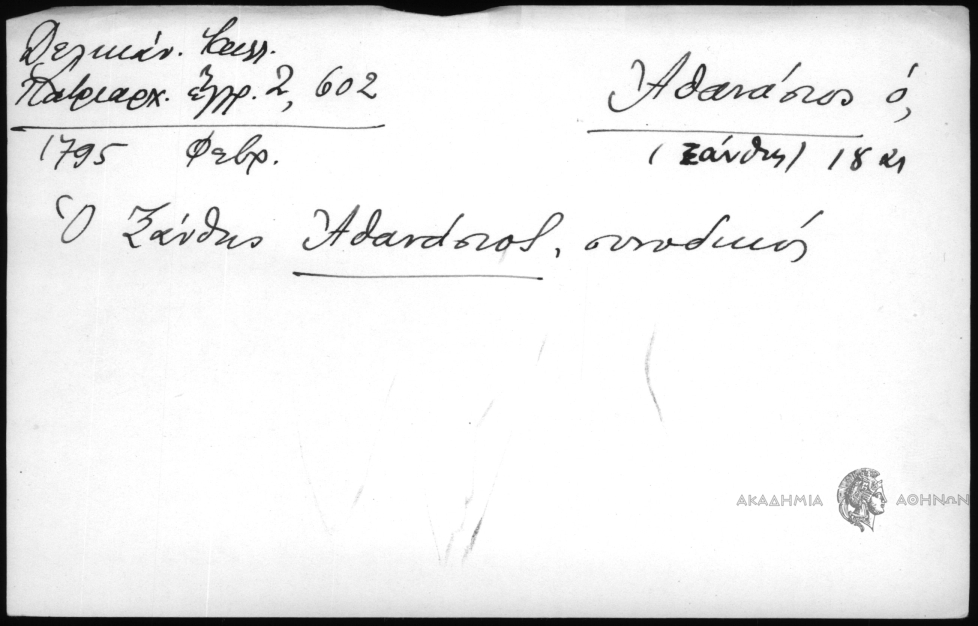 Δελικάν. Καλλ.
Πατριαρχ. ἔγγρ. 2, 602
1795 Φεβρ.
Ἀθανάσιος ὁ,
(Ξάνθης) 18
Ὁ Ξάνθης Ἀθανάσιος, συνοδικός
ΑΚΑΔΗΜΙΑ ΑΘΗΝΩΝ